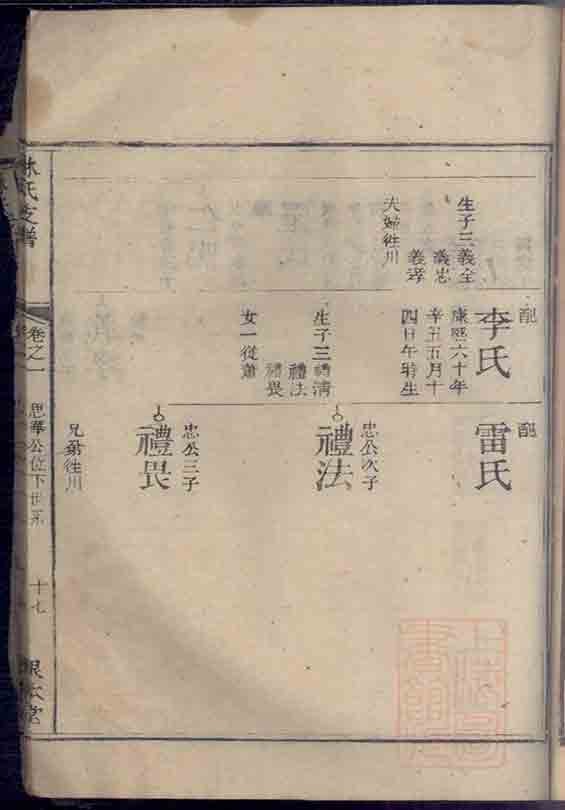 生子三義全
義忠
義孝
夫婦徃川
配
李氏
康熙六十年
辛丑五月十
四日午時生
生子三禮清
禮法
禮畏
女一從蕭
配
雷氏
忠公次子
禮法
忠公三子
禮畏
兄弟徃川
林氏支譜
卷之一
思華公位下世系
十七